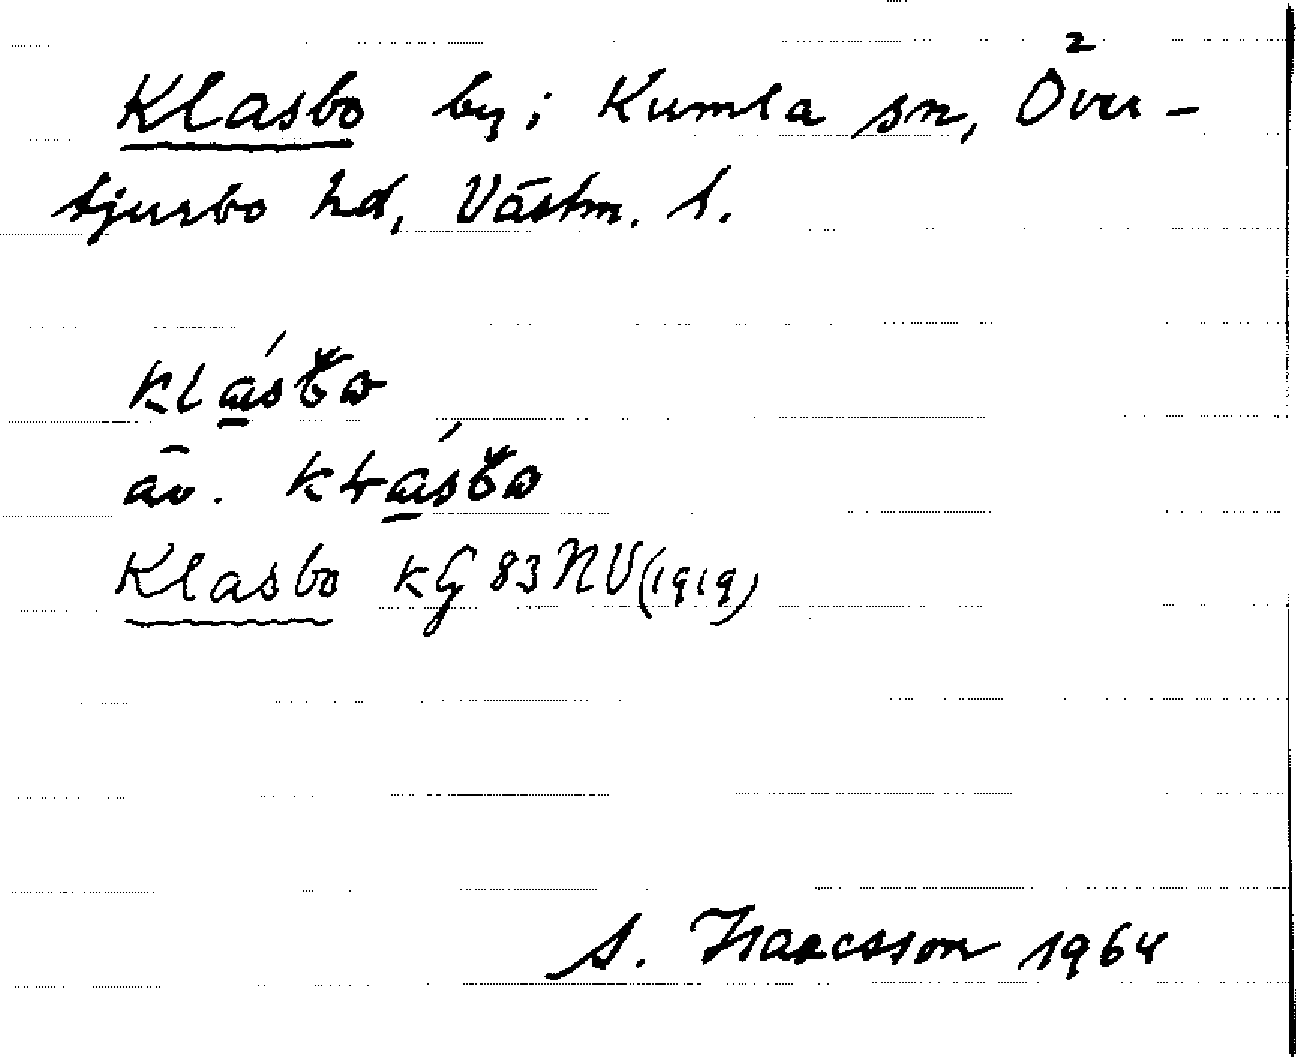 Klasbo by; Kumla sn, Över-
tjurbo hd, Västm. l.
äv.
Klasbo kG 83 NV (1919)
S. Isaacsson 1964